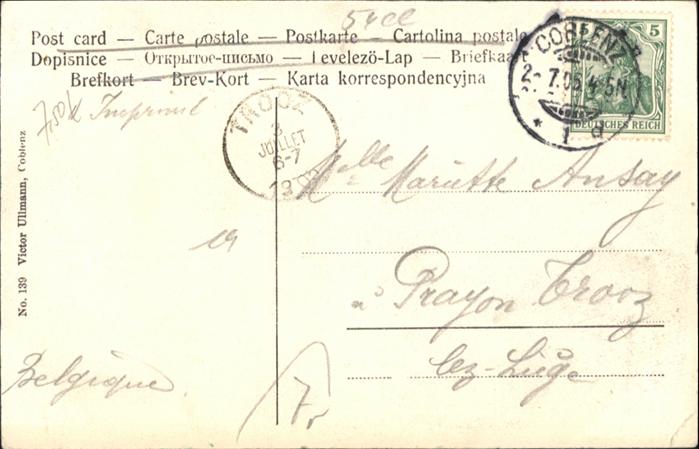 54cl
Post card — Carte postale — Postkarte — Cartolina postale
Dopisnice — Открытое-письмо — Levelezö-Lap — Briefkaart
Brefkort — Brev-Kort — Karta korrespondencyjna
COBLENZ
2. 7.05. 4-5N
* 1 d
5
DEUTSCHES REICH
7,50
TROOZ
3
JUILLET
6-7
Mlle Mariette Ansay
à Prayon Trooz
lez-Liège
Belgique
7,
No. 139 Victor Ullmann, Coblenz